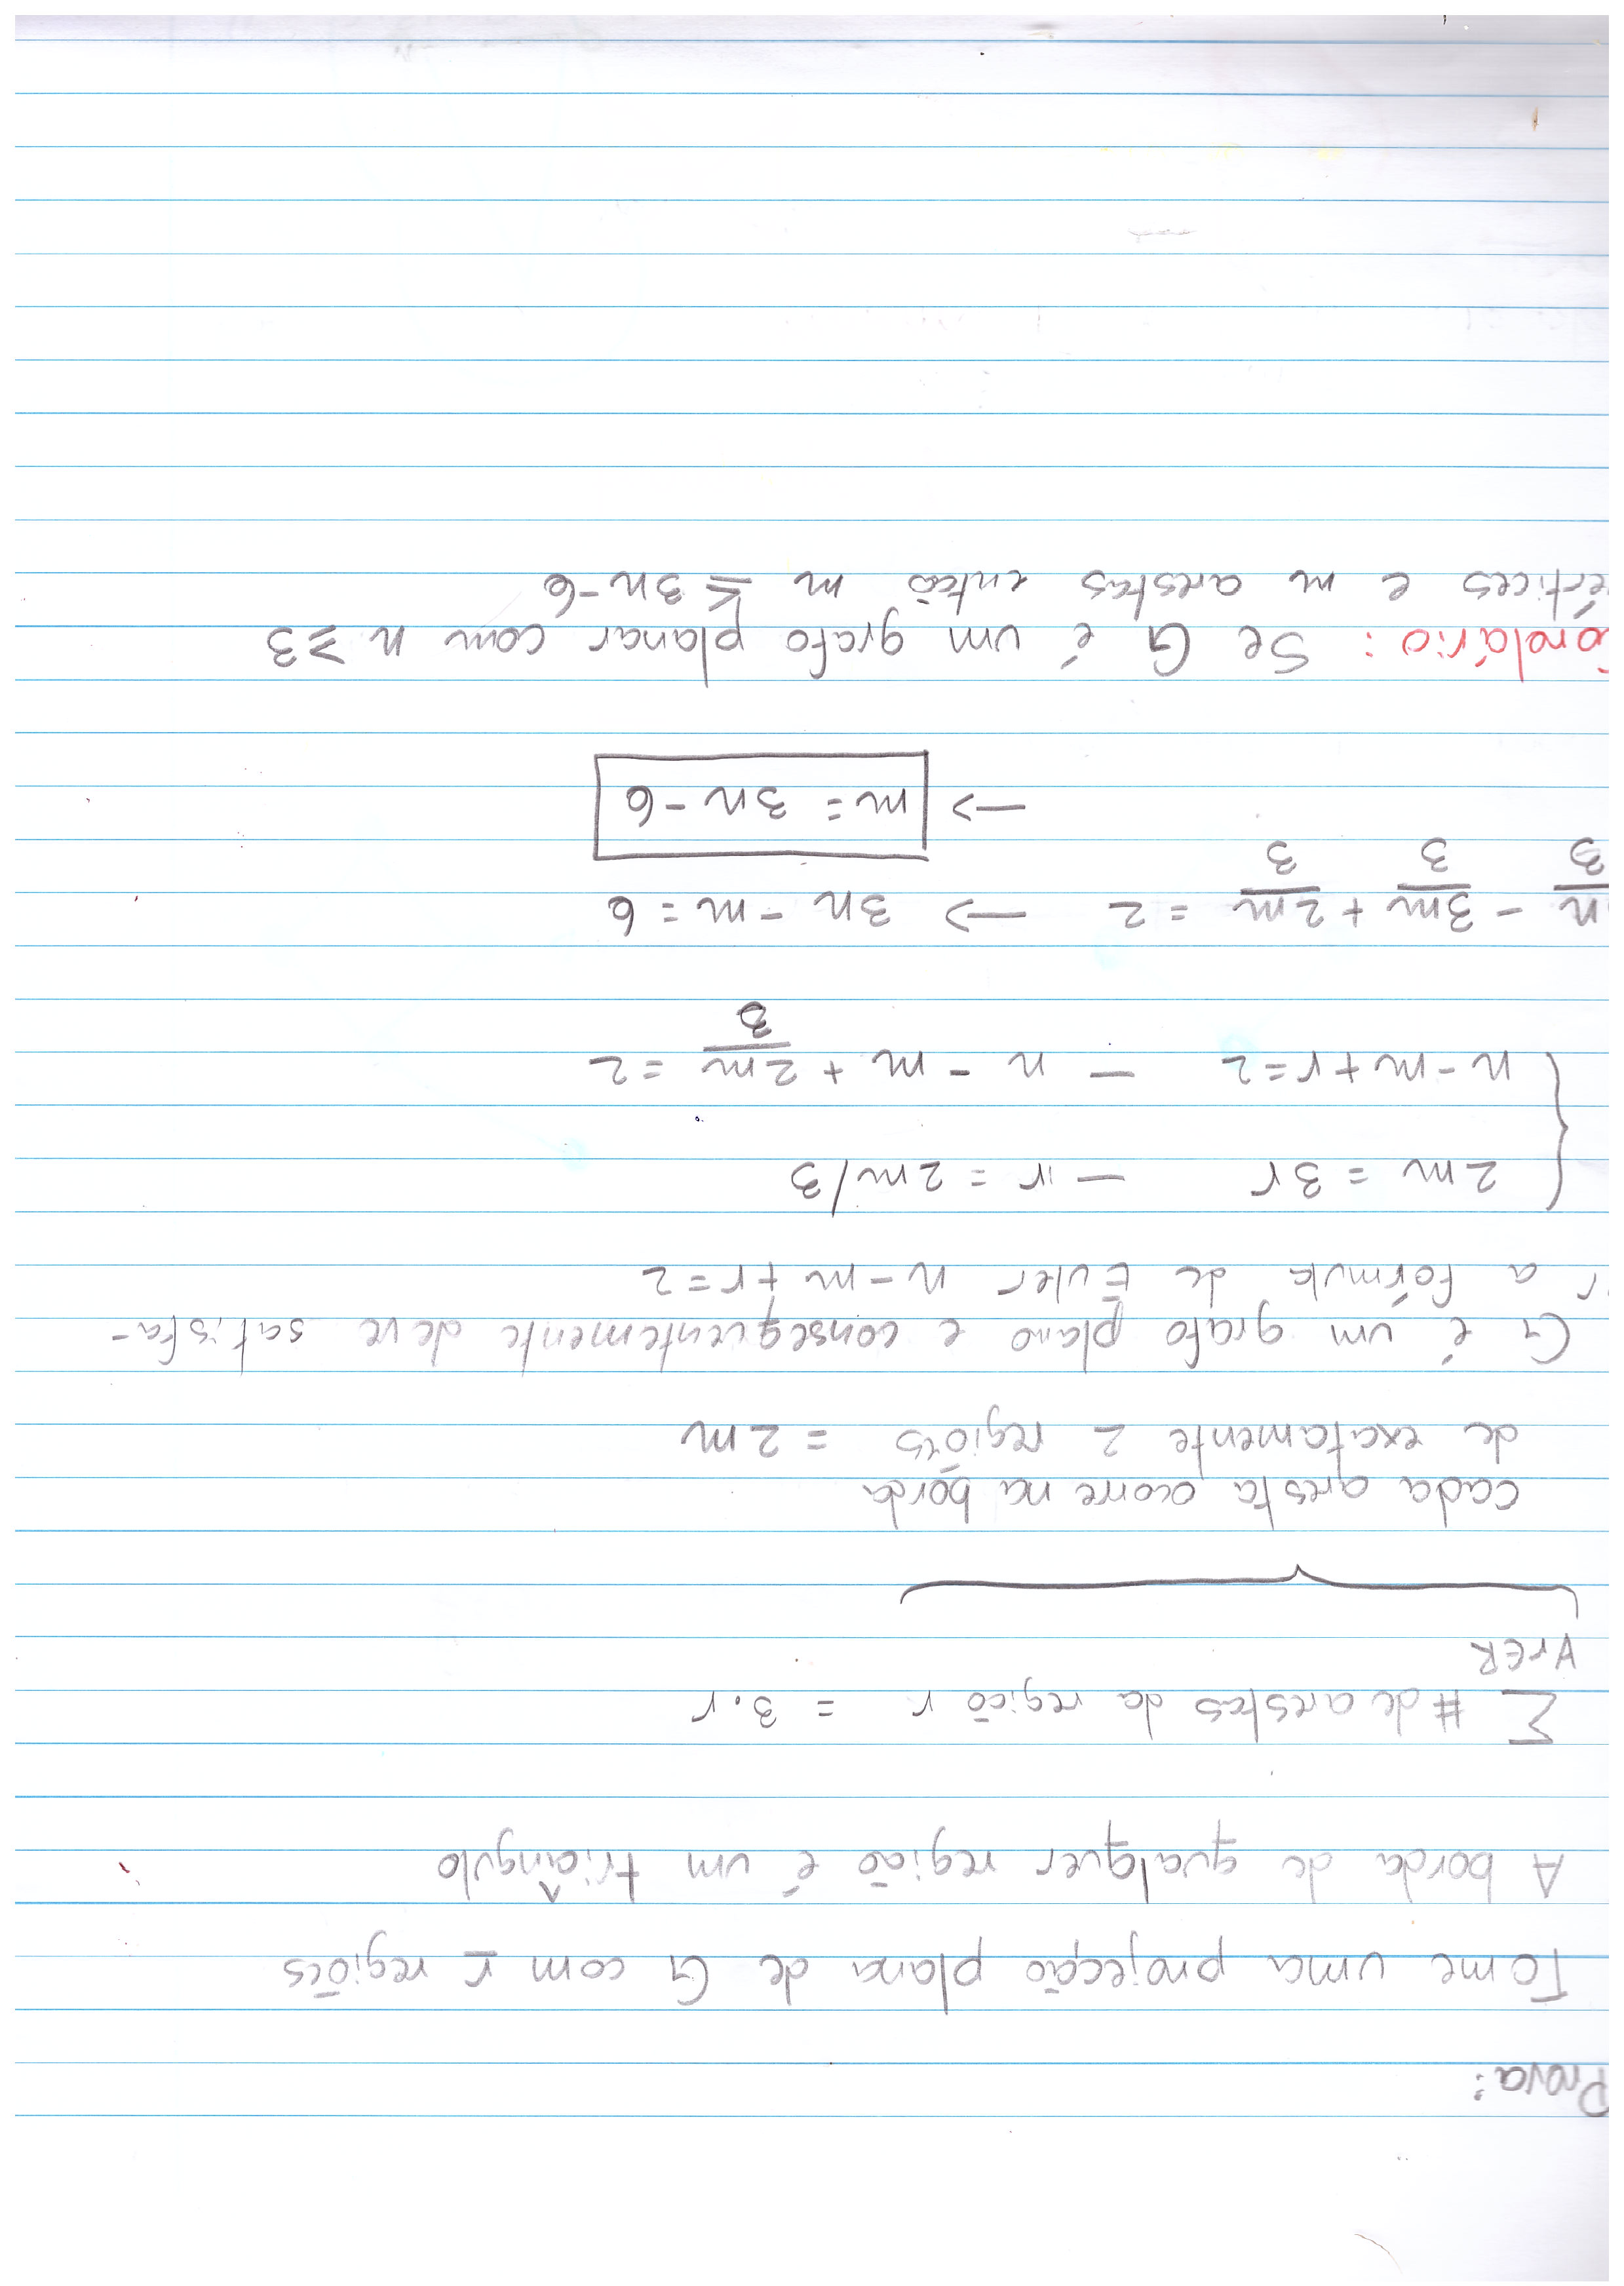 Prova:
Tome uma projecção plana de G com r regiões
A borda de qualquer região é um triângulo
∑ # de arestas da região r = 3.r
∀r∈R
cada aresta ocorre na borda
de exatamente 2 regiões = 2m
G é um grafo plano e consequentemente deve satisfa-
r a fórmula de Euler n-m+r=2
2m = 3r — r = 2m/3
n-m+r=2 — n - m + 2m/3 = 2
n/3 - 3m/3 + 2m/3 = 2 → 3n - m = 6
→ m = 3n-6
orolário: Se G é um grafo planar com n ≥ 3
értices e m arestas então m ≤ 3n-6